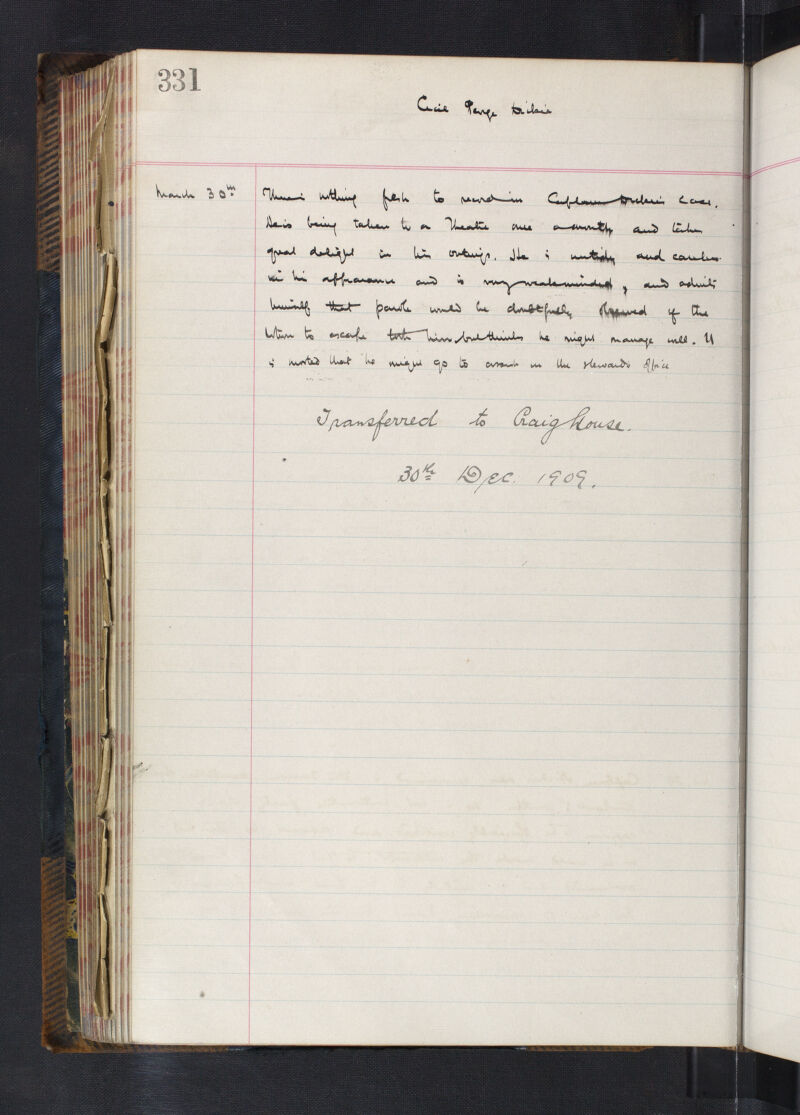 331
Cecil George Dickie
March 30th
There is nothing fresh to record in Captain Dickie's case.
He is being taken to a Theatre once a month and takes
great delight in his outings. He is untidy and careless
in his appearance and is very weakminded, and admits
himself that parole would be doubtfully observed if the
to escape took him, but thinks he might manage well. It
is mooted that he might go to assist in the Stewards Office
Transferred to Craig House.
30th Dec. 1909.